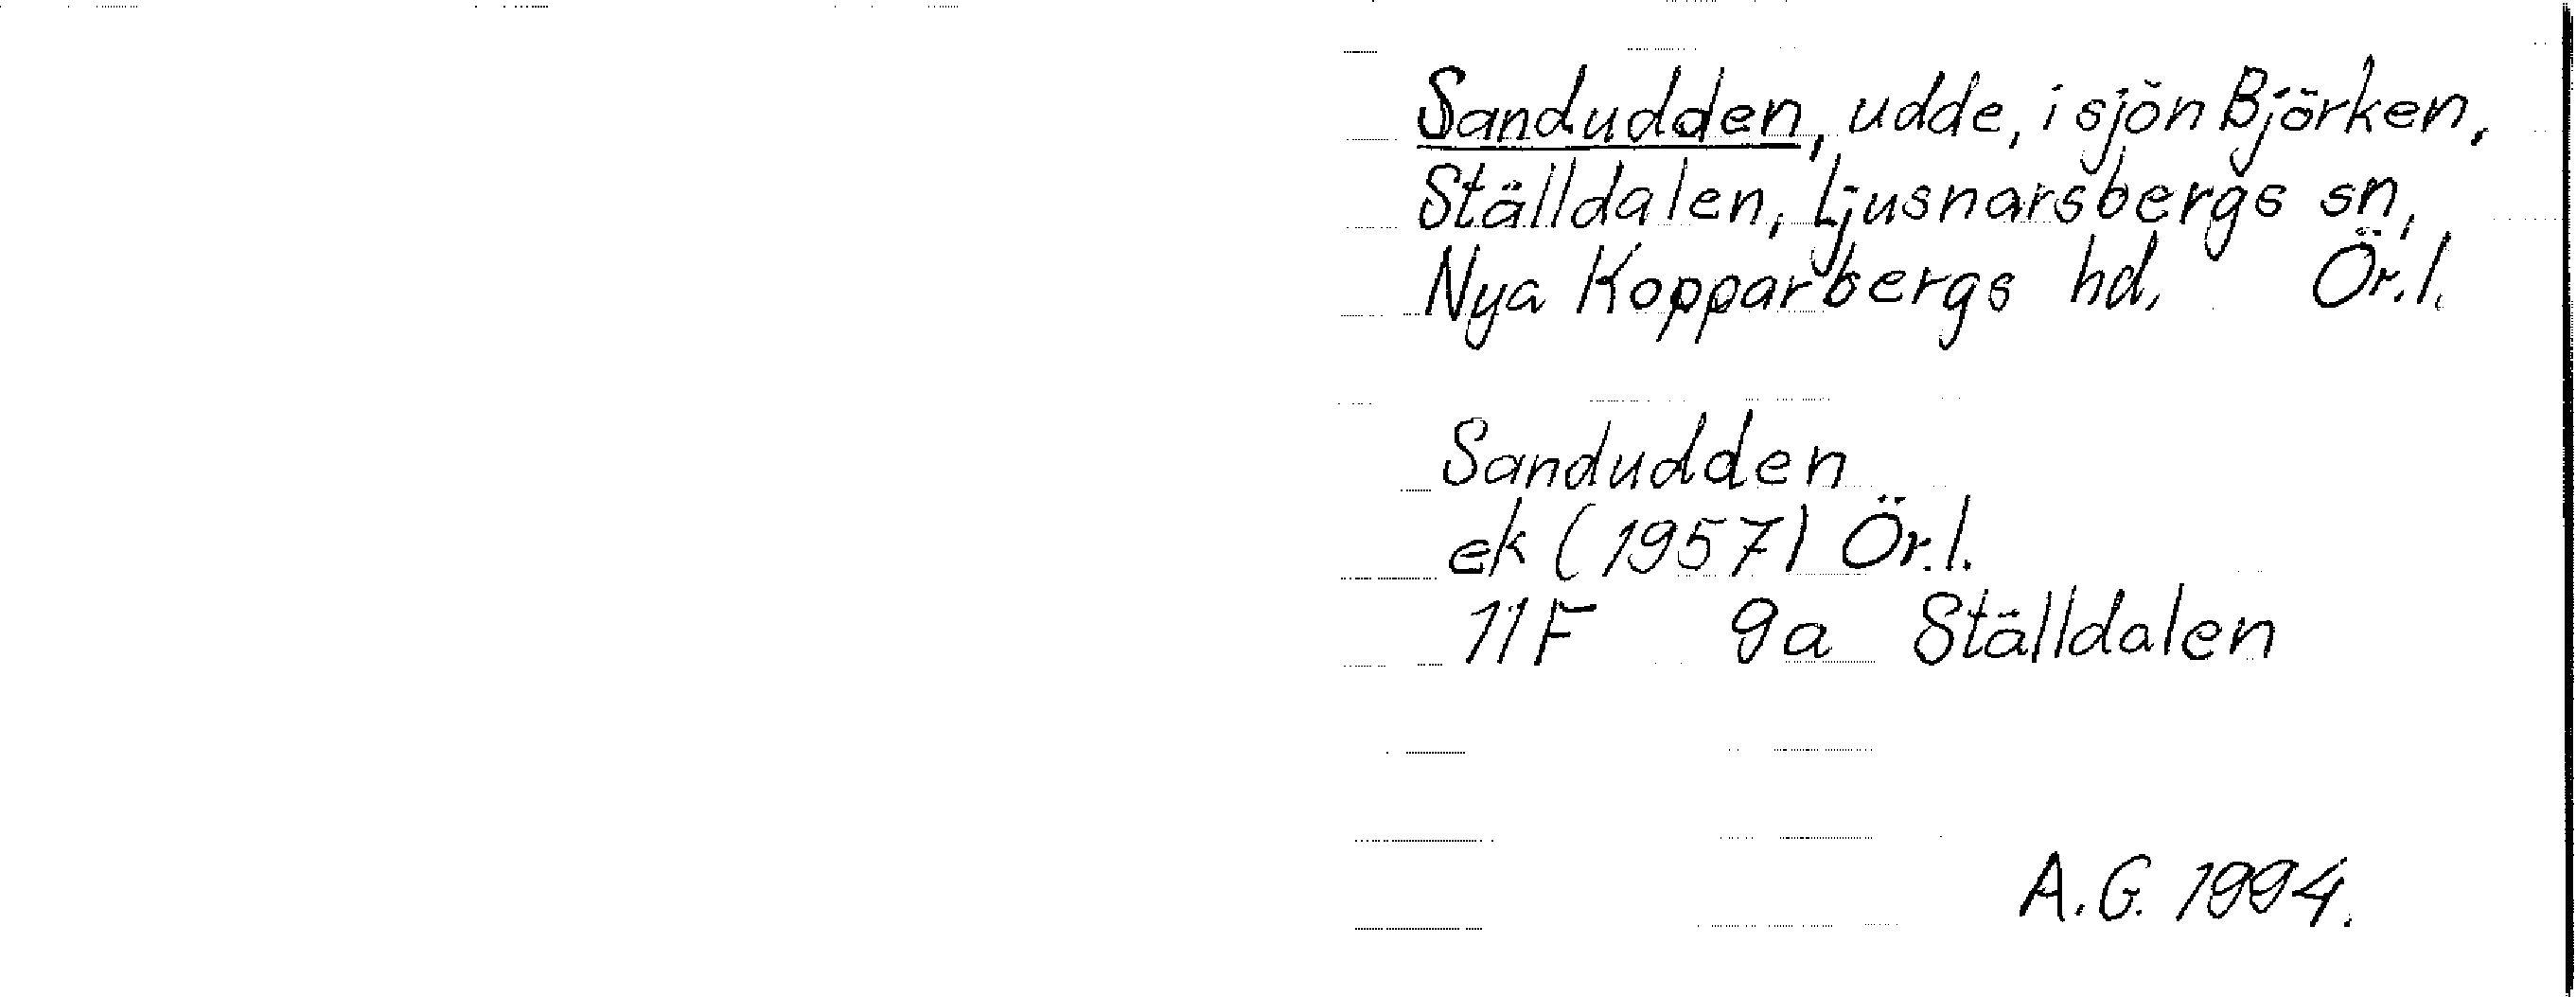 Sandudden, udde, i sjön Björken,
Ställdalen, Ljusnarsbergs sn,
Nya Kopparbergs hd, Ör.l.
Sandudden
ek (1957) Ör.l.
11F 9a Ställdalen
A.G. 1994.